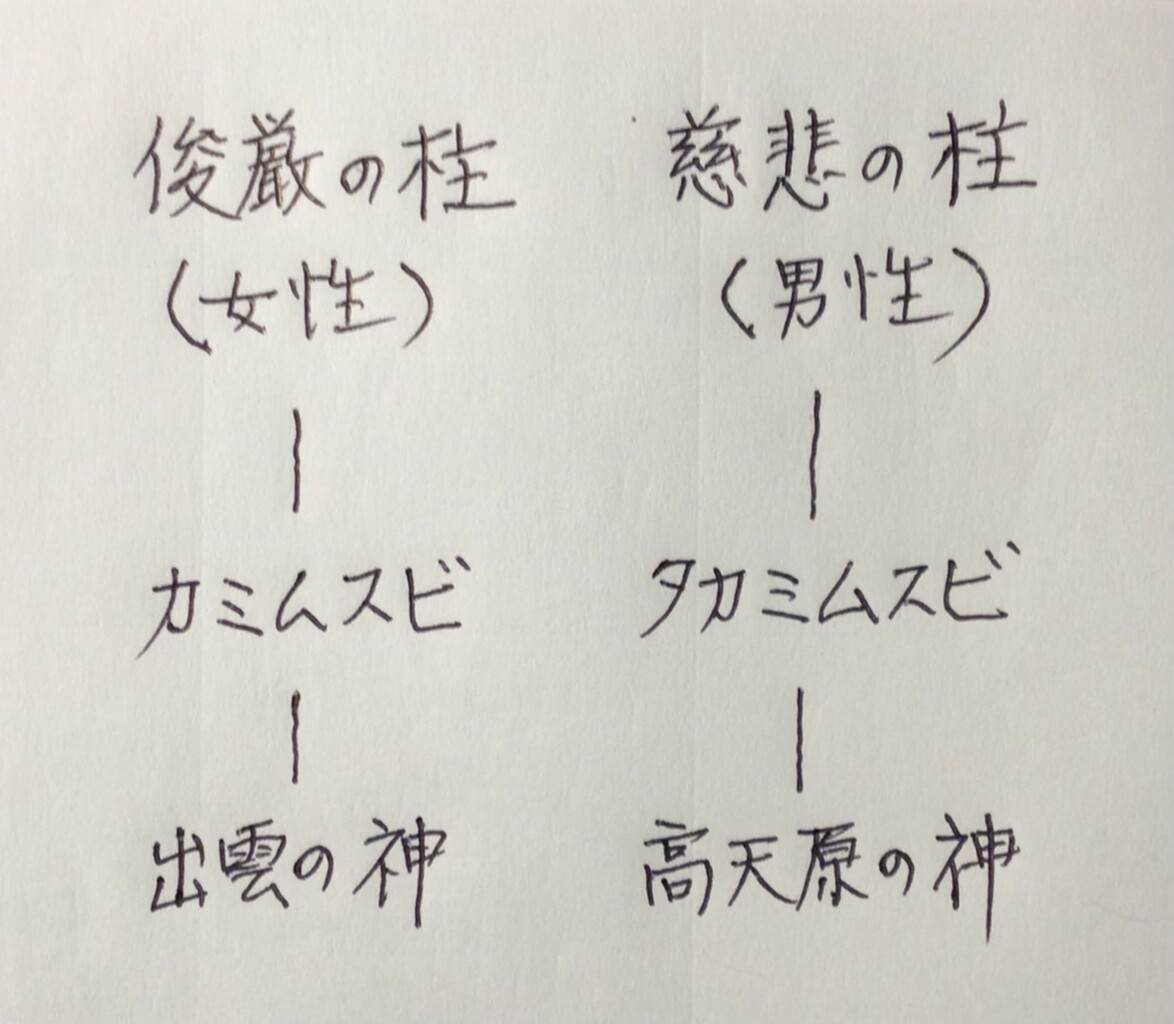 俊厳の柱
(女性)
カミムスビ
出雲の神
慈悲の柱
(男性)
タカミムスビ
高天原の神